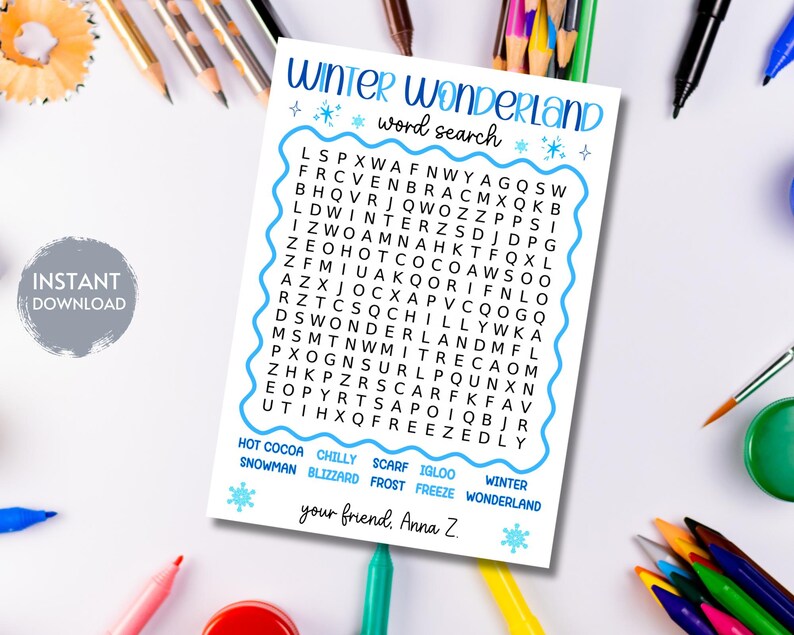 WINTER WONDERLAND
word search
L S P X W A F N W Y A G Q S W
F R C V E N B R A C M X Q K B
B H Q V R J Q W O Z Z P P S I
L D W I N T E R Z S D J D P G
I Z W O A M N A H K T F Q X L
Z E O H O T C O C O A W S O O
Z F M I U A K Q O R I F N L O
A Z X J O C X A P V C Q O G Q
R Z T C S Q C H I L L Y W K A
D S W O N D E R L A N D M F L
M S M T N W M I T R E C A O M
P X O G N S U R L P Q U N X N
Z H K P Z R S C A R F K F A V
E O P Y R T S A P O I Q B J R
U T I H X Q F R E E Z E D L Y
HOT COCOA CHILLY SCARF IGLOO WINTER
SNOWMAN BLIZZARD FROST FREEZE WONDERLAND
your friend, Anna Z.
INSTANT
DOWNLOAD